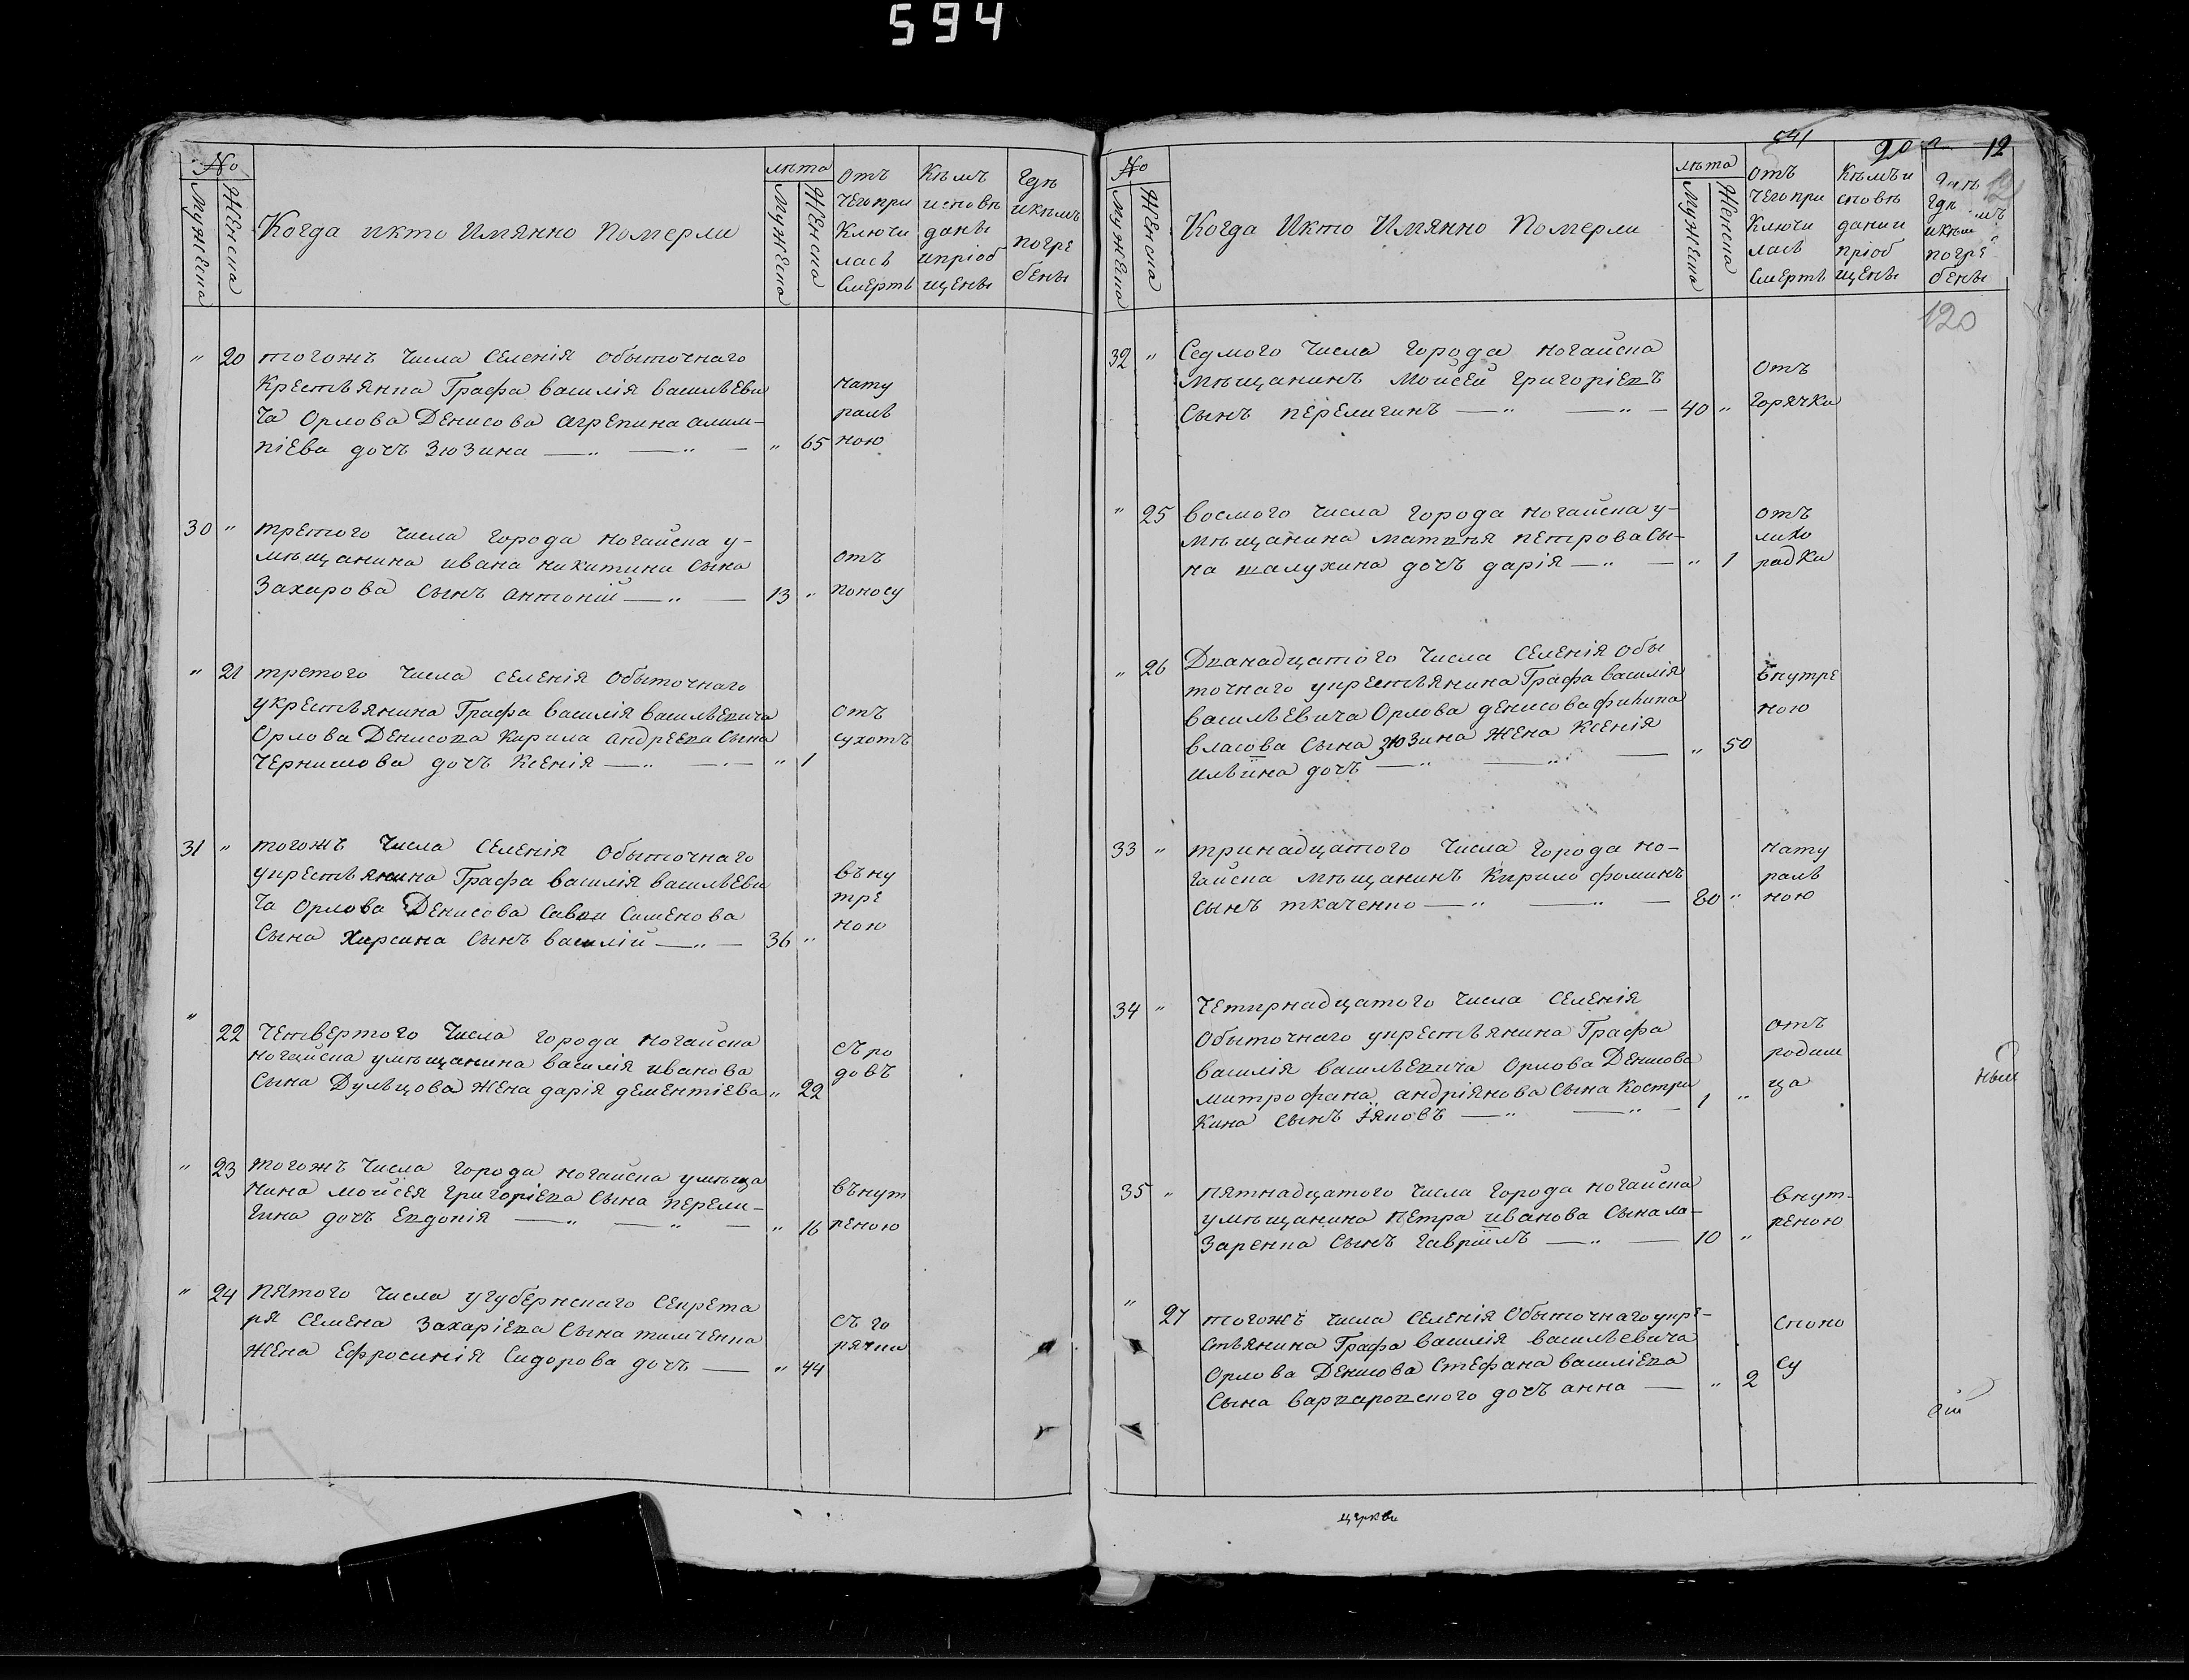 594
№
Мужеска
Женска
Когда икто Имянно Померли
лѣта
Мужеска
Женска
Отъ
Чегопри
Ключи
лась
Смерть
Кѣмъ
исповѣ
даны
ипріоб
щены
Гдѣ
икѣмъ
погре
бены
" 20 тогожъ числа селенія обыточнаго
Крестьянка Графа василія васильеви нату
ча Орлова Денисова агрепина алим- раль
піева дочъ Зюзина — " — " — " 65 ною
30 " третого числа города ногайска у-
мѣщанина ивана никитини сына отъ
Захарова сынъ антоній — " — 13 " поносу
" 21 третого числа селенія обыточнаго
укрестьянина Графа василія васильевича отъ
Орлова Денисова Кирила андреева сына сухотъ
Чернишова дочъ Ксенія — " — " — " 1
31 " тогожъ числа селенія обыточнаго
укрестьянина Графа василія васильеви въну
ча Орлова Денисова Савки Семенова тре
Сына Хирсина Сынъ василій — " — 36 " ною
" 22 четвертого числа города ногайска съ ро
ногайска умѣщанина василія иванова довъ
сына Дульцова жена дарія дементіева " 22
" 23 тогожъ числа города ногайска умѣща
нина мойсея григоріева сына перели- вънут
гина дочъ Евдокія — " — " — " 16 реною
" 24 пятого числа угубернскаго секрета
ря семена захаріева сына тимченка съ го
жена Ефросинія Сидорова дочъ — " 44 рячки
641
20
12
120
№
Мужеска
Женска
Когда Икто Имянно Померли
лѣта
Мужеска
Женска
Отъ
Чегопри
Ключи
лась
Смерть
Кѣмъ и
сповѣ
дании
пріоб
щены
Гдѣ
икѣм
погре
бены
32 " Седмого числа города ногайска
мѣщанинъ Мойсей григоріевъ отъ
сынъ перелигинъ — " — " — 40 " горячки
" 25 восмого числа города ногайска у- отъ
мѣщанина маткѣя петрова сы- лихо
на шалухина дочъ дарія — " — " 1 радки
" 26 Дванадцатого числа селенія обы
точнаго укрестьянина Графа василія внутре
васильевича Орлова денисова филипа ною
власова сына зюзина жена Ксенія
ильіина дочъ — " — " — " 50
33 " тринадцатого числа города но- нату
гайска мѣщанинъ Кирило фоминъ раль
сынъ ткаченко — " — " — 80 " ною
34 " Четирнадцатого числа селенія
Обыточнаго укрестьянина Графа отъ
василія васильевича Орлова Денисова родим
митрофана андріянова сына Костри ца
кина сынъ Іяковъ — " — " — 1 "
35 " пятнадцатого числа города ногайска внут-
умѣщанина петра иванова сына ла- реною
заренка сынъ гавріилъ — " — 10 "
" 27 тогожъ числа селенія Обыточнаго укре-
стьянина Графа василія васильевича споно
Орлова Денисова Стефана василіева су
сына варваровского дочъ анна — " 2
церкви